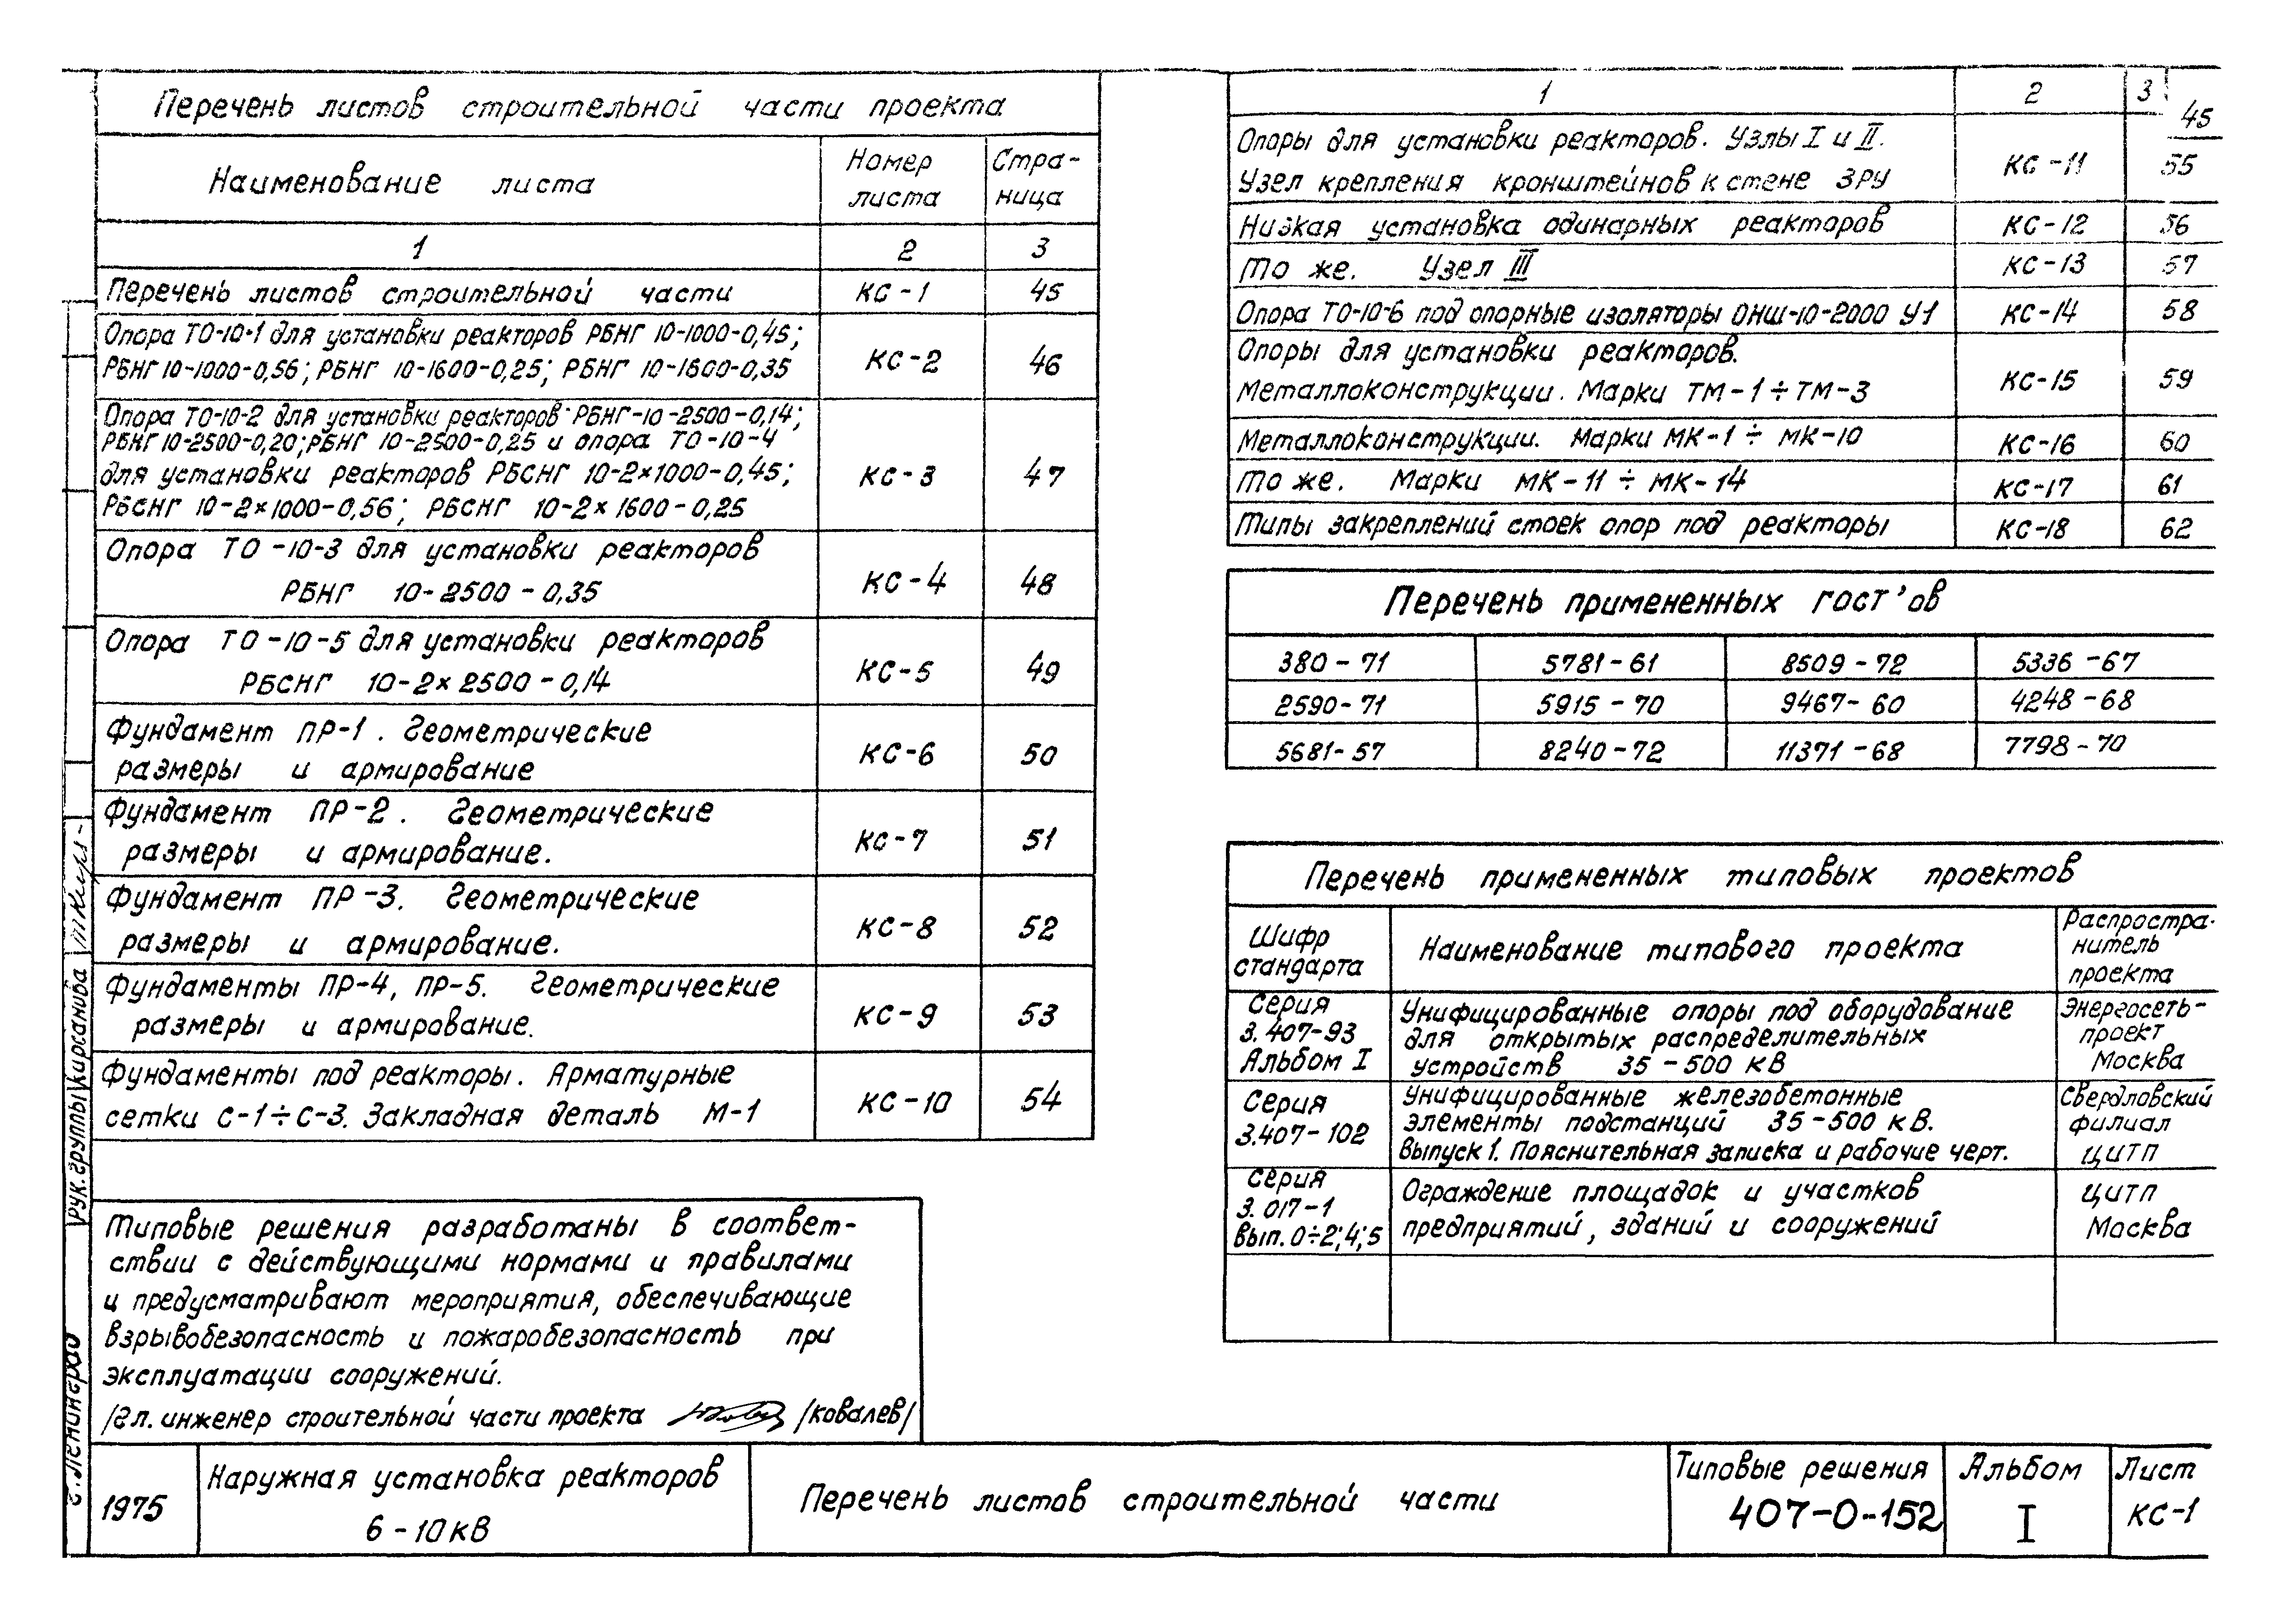 Перечень листов строительной части проекта
Наименование листа
Номер листа
Стра-
ница
1 2 3
Перечень листов строительной части КС-1 45
Опора ТО-10-1 для установки реакторов РБНГ 10-1000-0,45;
РБНГ 10-1000-0,56; РБНГ 10-1600-0,25; РБНГ 10-1600-0,35 КС-2 46
Опора ТО-10-2 для установки реакторов РБНГ-10-2500-0,14;
РБНГ 10-2500-0,20; РБНГ 10-2500-0,25 и опора ТО-10-4
для установки реакторов РБСНГ 10-2×1000-0,45; КС-3 47
РБСНГ 10-2×1000-0,56; РБСНГ 10-2×1600-0,25
Опора ТО-10-3 для установки реакторов
РБНГ 10-2500-0,35 КС-4 48
Опора ТО-10-5 для установки реакторов
РБСНГ 10-2×2500-0,14 КС-5 49
Фундамент ПР-1. Геометрические
размеры и армирование КС-6 50
Фундамент ПР-2. Геометрические
размеры и армирование. КС-7 51
Фундамент ПР-3. Геометрические
размеры и армирование. КС-8 52
Фундаменты ПР-4, ПР-5. Геометрические
размеры и армирование. КС-9 53
Фундаменты под реакторы. Арматурные
сетки С-1÷С-3. Закладная деталь М-1 КС-10 54
Типовые решения разработаны в соответ-
ствии с действующими нормами и правилами
и предусматривают мероприятия, обеспечивающие
взрывобезопасность и пожаробезопасность при
эксплуатации сооружений.
/Гл. инженер строительной части проекта /Ковалев/
1 2 3
45
Опоры для установки реакторов. Узлы I и II.
Узел крепления кронштейнов к стене ЗРУ КС-11 55
Низкая установка одинарных реакторов КС-12 56
То же. Узел III КС-13 57
Опора ТО-10-6 под опорные изоляторы ОНШ-10-2000 У1 КС-14 58
Опоры для установки реакторов.
Металлоконструкции. Марки ТМ-1÷ТМ-3 КС-15 59
Металлоконструкции. Марки МК-1÷МК-10 КС-16 60
То же. Марки МК-11÷МК-14 КС-17 61
Типы закреплений стоек опор под реакторы КС-18 62
Перечень примененных ГОСТ'ов
380-71 5781-61 8509-72 5336-67
2590-71 5915-70 9467-60 4248-68
5681-57 8240-72 11371-68 7798-70
Перечень примененных типовых проектов
Шифр
стандарта
Наименование типового проекта
Распростра-
нитель
проекта
Серия
3.407-93
Альбом I
Унифицированные опоры под оборудование
для открытых распределительных
устройств 35-500 кВ
Энергосеть-
проект
Москва
Серия
3.407-102
Унифицированные железобетонные
элементы подстанций 35-500 кВ.
Выпуск 1. Пояснительная записка и рабочие черт.
Свердловский
филиал
ЦИТП
Серия
3.017-1
Вып. 0÷2;4;5
Ограждение площадок и участков
предприятий, зданий и сооружений
ЦИТП
Москва
г. Ленинград
Рук. группы Кирсанова
1975
Наружная установка реакторов
6-10 кВ
Перечень листов строительной части
Типовые решения
407-0-152
Альбом
I
Лист
КС-1